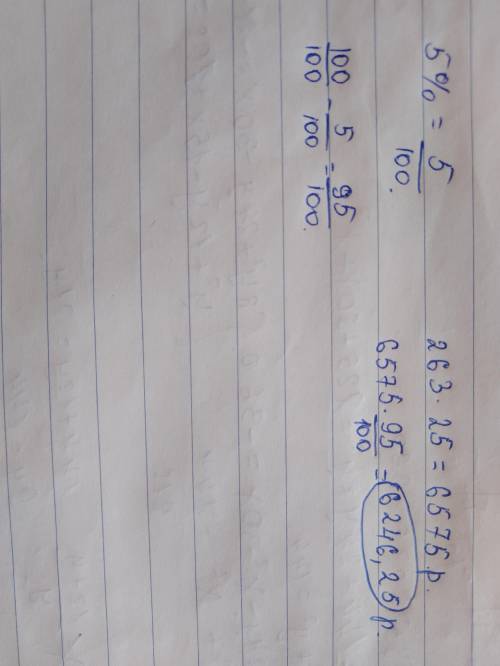 5% = 5/100.
100/100 - 5/100 = 95/100.
263 · 25 = 6575 р.
6575 · 95/100 = 6246,25 р.